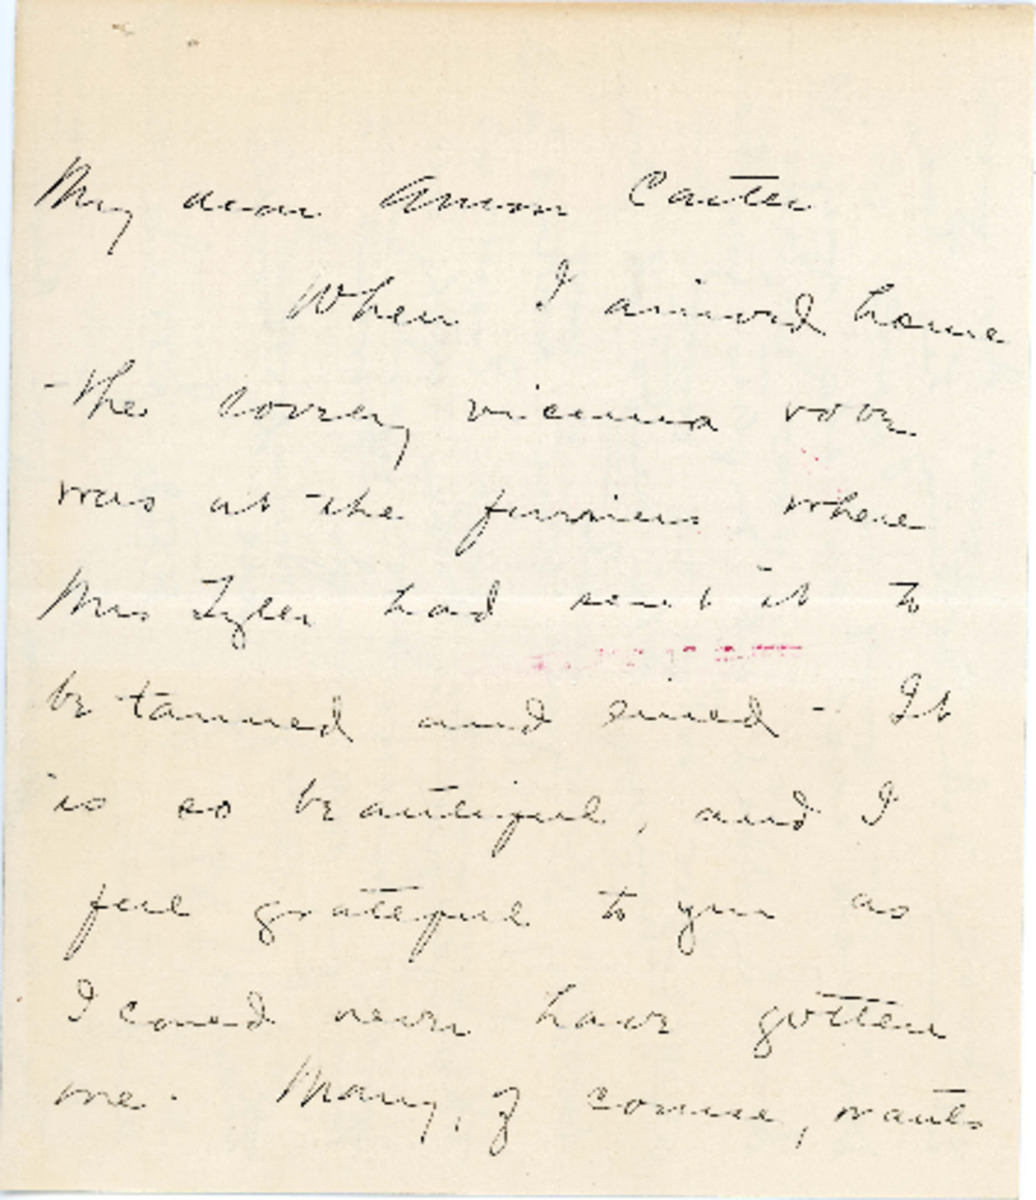 My dear Amon Carter
When I arrived home
the lovely vicuna robe
was at the furriers where
Mrs Tyler had sent it to
be tanned and lined - It
is so beautiful, and I
feel grateful to you as
I could never have gotten
one. Mary, of course, wants